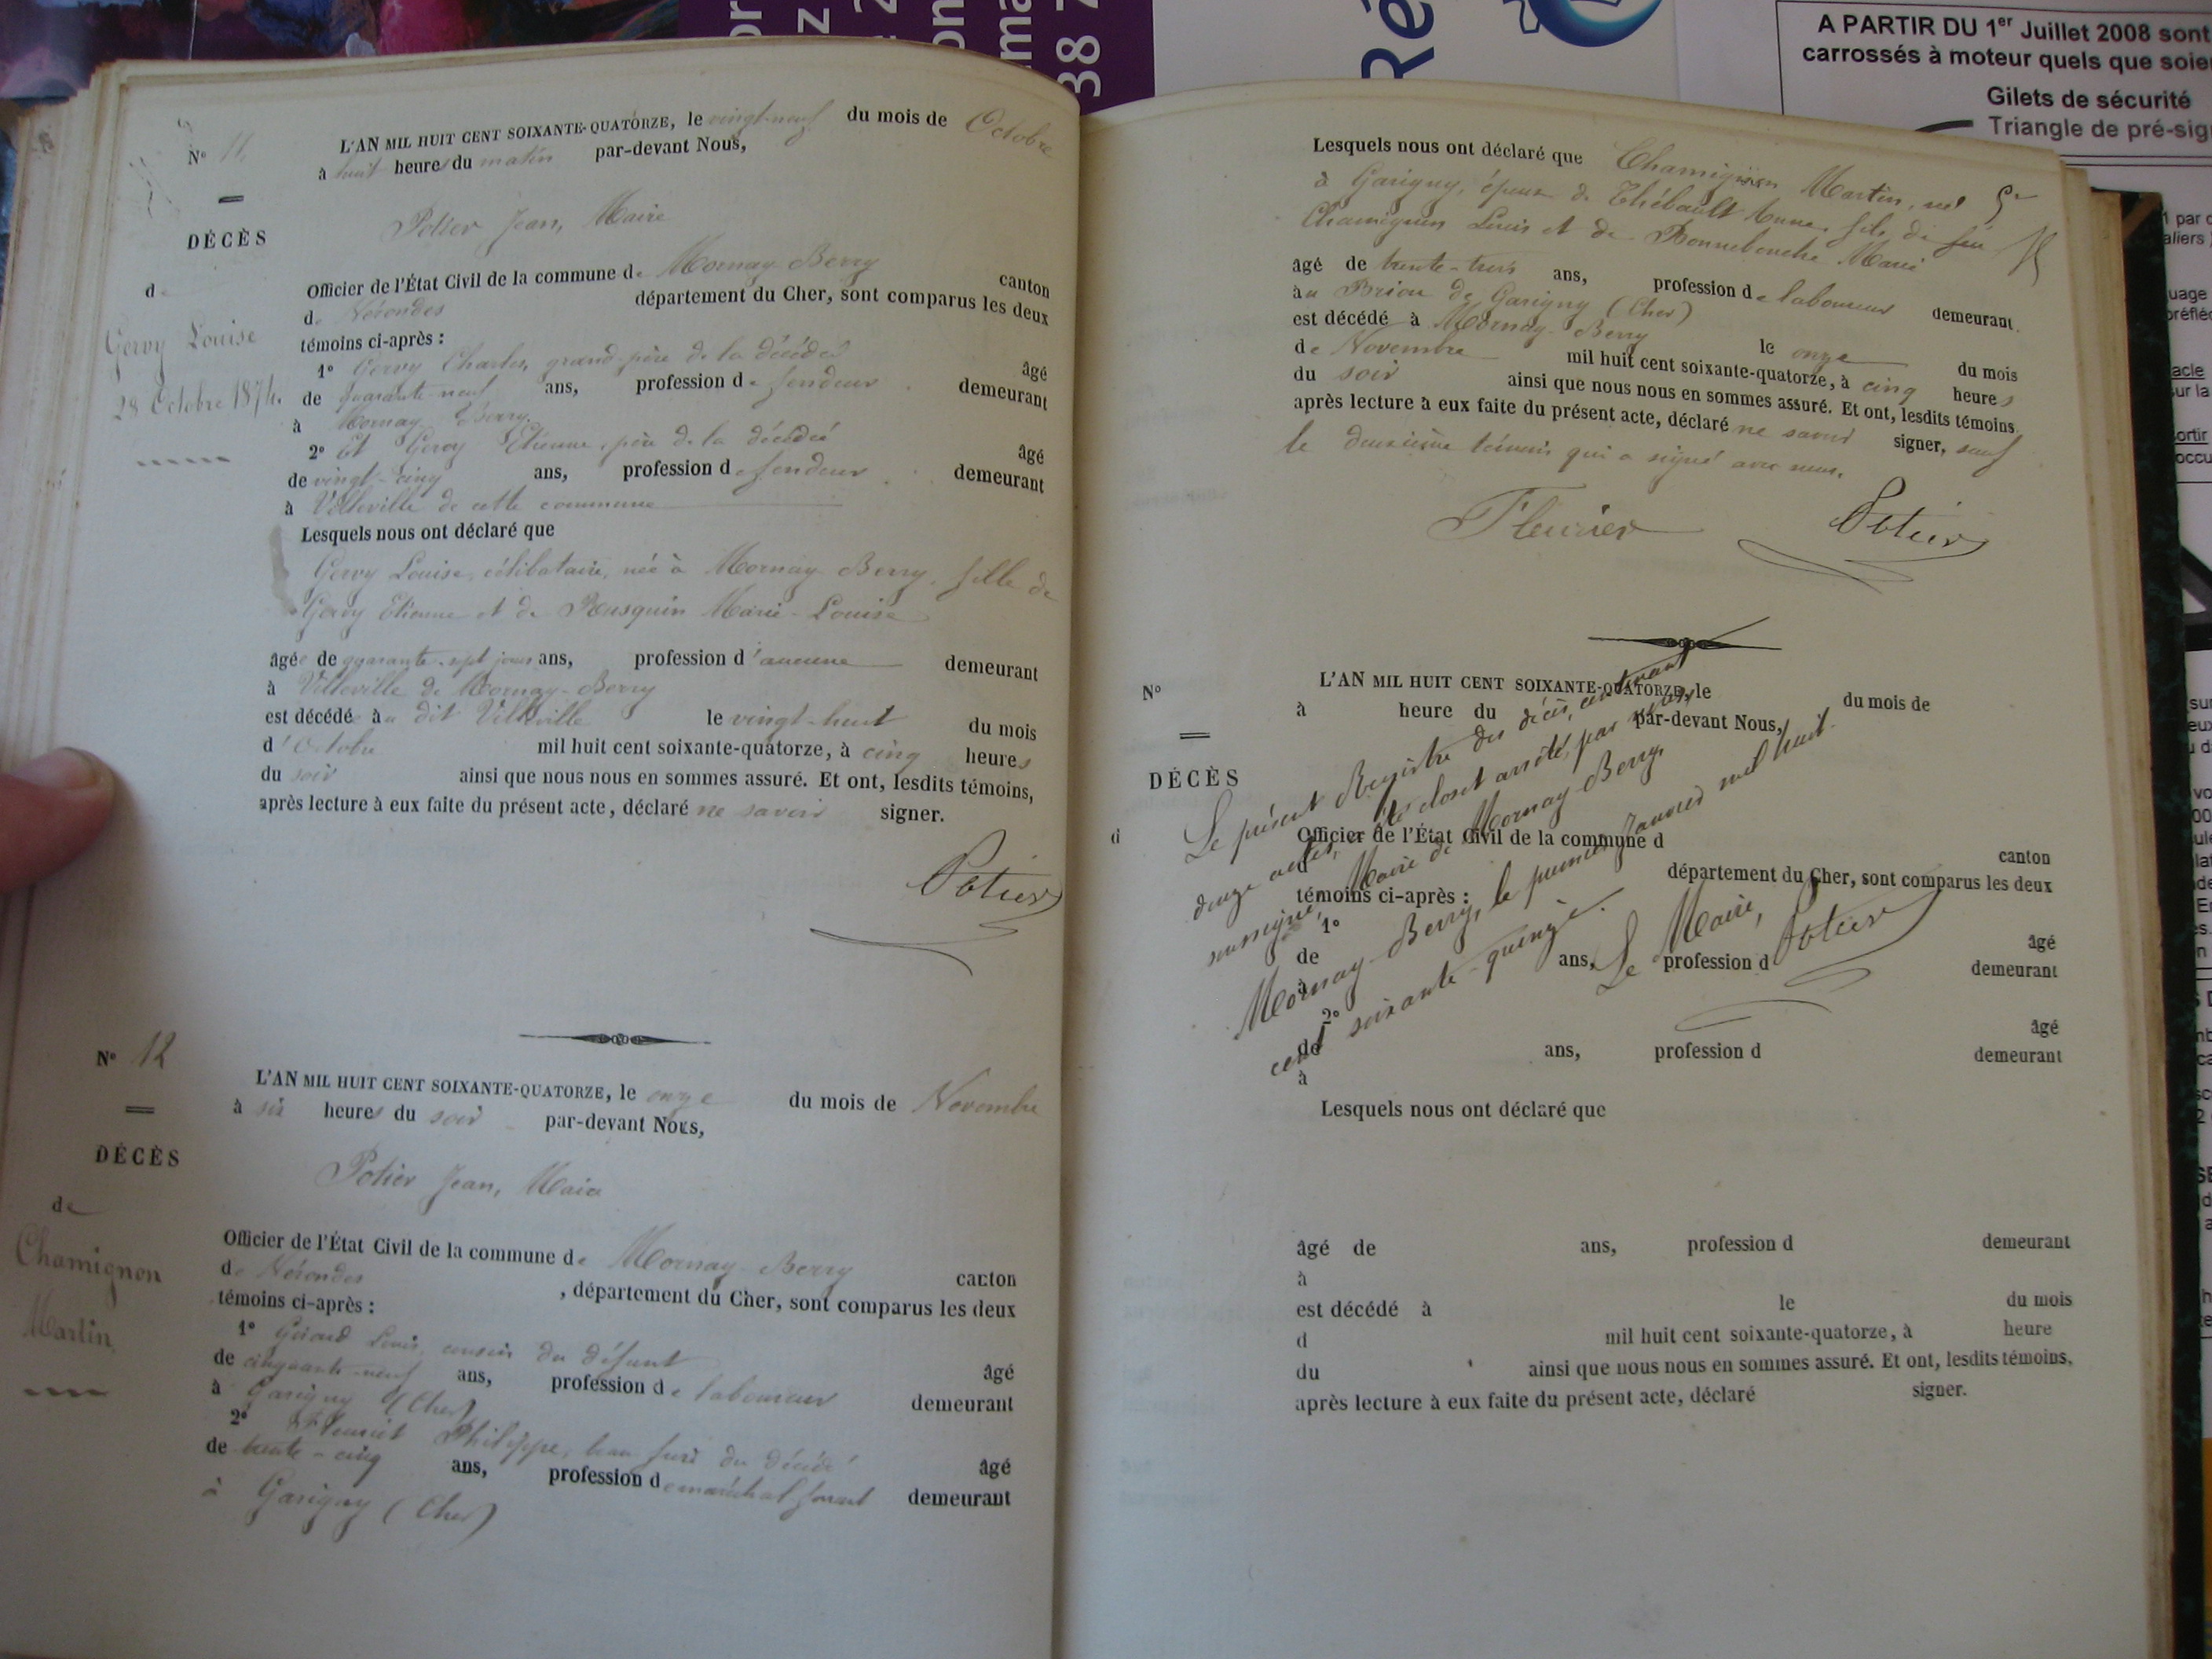 A PARTIR DU 1er Juillet 2008 sont
carrossés à moteur quels que soie
Gilets de sécurité
Triangle de pré-sig
Ré
38 7
N° 11
DÉCÈS
de
Gervy Louise
28 Octobre 1874.
L'AN MIL HUIT CENT SOIXANTE-QUATORZE, le vingt-neuf du mois de Octobre
à huit heures du matin par-devant Nous,
Potier Jean, Maire
Officier de l'État Civil de la commune de Mornay-Berry canton
de Nérondes département du Cher, sont comparus les deux
témoins ci-après :
1° Gervy Charles, grand-père de la décédée âgé
de quarante-neuf ans, profession de fendeur demeurant
à Mornay-Berry.
2° Et Gervy Etienne, père de la décédée âgé
de vingt-cinq ans, profession de fendeur demeurant
à Villeville de cette commune
Lesquels nous ont déclaré que
Gervy Louise, célibataire, née à Mornay-Berry, fille de
Gervy Etienne et de Rusquin Marie-Louise
âgée de quarante-sept jours ans, profession d'aucune demeurant
à Villeville de Mornay-Berry
est décédée au dit Villeville le vingt-huit du mois
d'Octobre mil huit cent soixante-quatorze, à cinq heures
du soir ainsi que nous nous en sommes assuré. Et ont, lesdits témoins,
après lecture à eux faite du présent acte, déclaré ne savoir signer.
Potier
N° 12
DÉCÈS
de
Chamignon
Martin
L'AN MIL HUIT CENT SOIXANTE-QUATORZE, le onze du mois de Novembre
à six heures du soir par-devant Nous,
Potier Jean, Maire
Officier de l'État Civil de la commune de Mornay-Berry canton
de Nérondes , département du Cher, sont comparus les deux
témoins ci-après :
1° Girard Louis, cousin du défunt âgé
de cinquante-neuf ans, profession de laboureur demeurant
à Garigny (Cher)
2° Fleurier Philippe, beau-frère du décédé âgé
de trente-cinq ans, profession de maréchal ferrant demeurant
à Garigny (Cher)
Lesquels nous ont déclaré que Chamignon Martin, né
à Garigny, époux de Thébault Anne, fils de feu
Chamignon Louis et de Bonnebouche Marie
âgé de trente-trois ans, profession de laboureur demeurant
au Briou de Garigny (Cher)
est décédé à Mornay-Berry le onze du mois
de Novembre mil huit cent soixante-quatorze, à cinq heures
du soir ainsi que nous nous en sommes assuré. Et ont, lesdits témoins
après lecture à eux faite du présent acte, déclaré ne savoir signer, sauf
le deuxième témoin qui a signé avec nous.
Fleurier Potier
N°
DÉCÈS
d
L'AN MIL HUIT CENT SOIXANTE-QUATORZE, le du mois de
à heure du par-devant Nous,
Officier de l'État Civil de la commune d canton
d département du Cher, sont comparus les deux
témoins ci-après :
1° âgé
de ans, profession d demeurant
à
2° âgé
de ans, profession d demeurant
à
Lesquels nous ont déclaré que
Le présent Registre des décès, contenant
douze actes, a été clos et arrêté, par nous
soussigné, Maire de Mornay-Berry,
Mornay-Berry, le premier Janvier mil huit
cent soixante-quinze.
Le Maire,
Potier
âgé de ans, profession d demeurant
à
est décédé à le du mois
d mil huit cent soixante-quatorze, à heure
du ainsi que nous nous en sommes assuré. Et ont, lesdits témoins,
après lecture à eux faite du présent acte, déclaré signer.